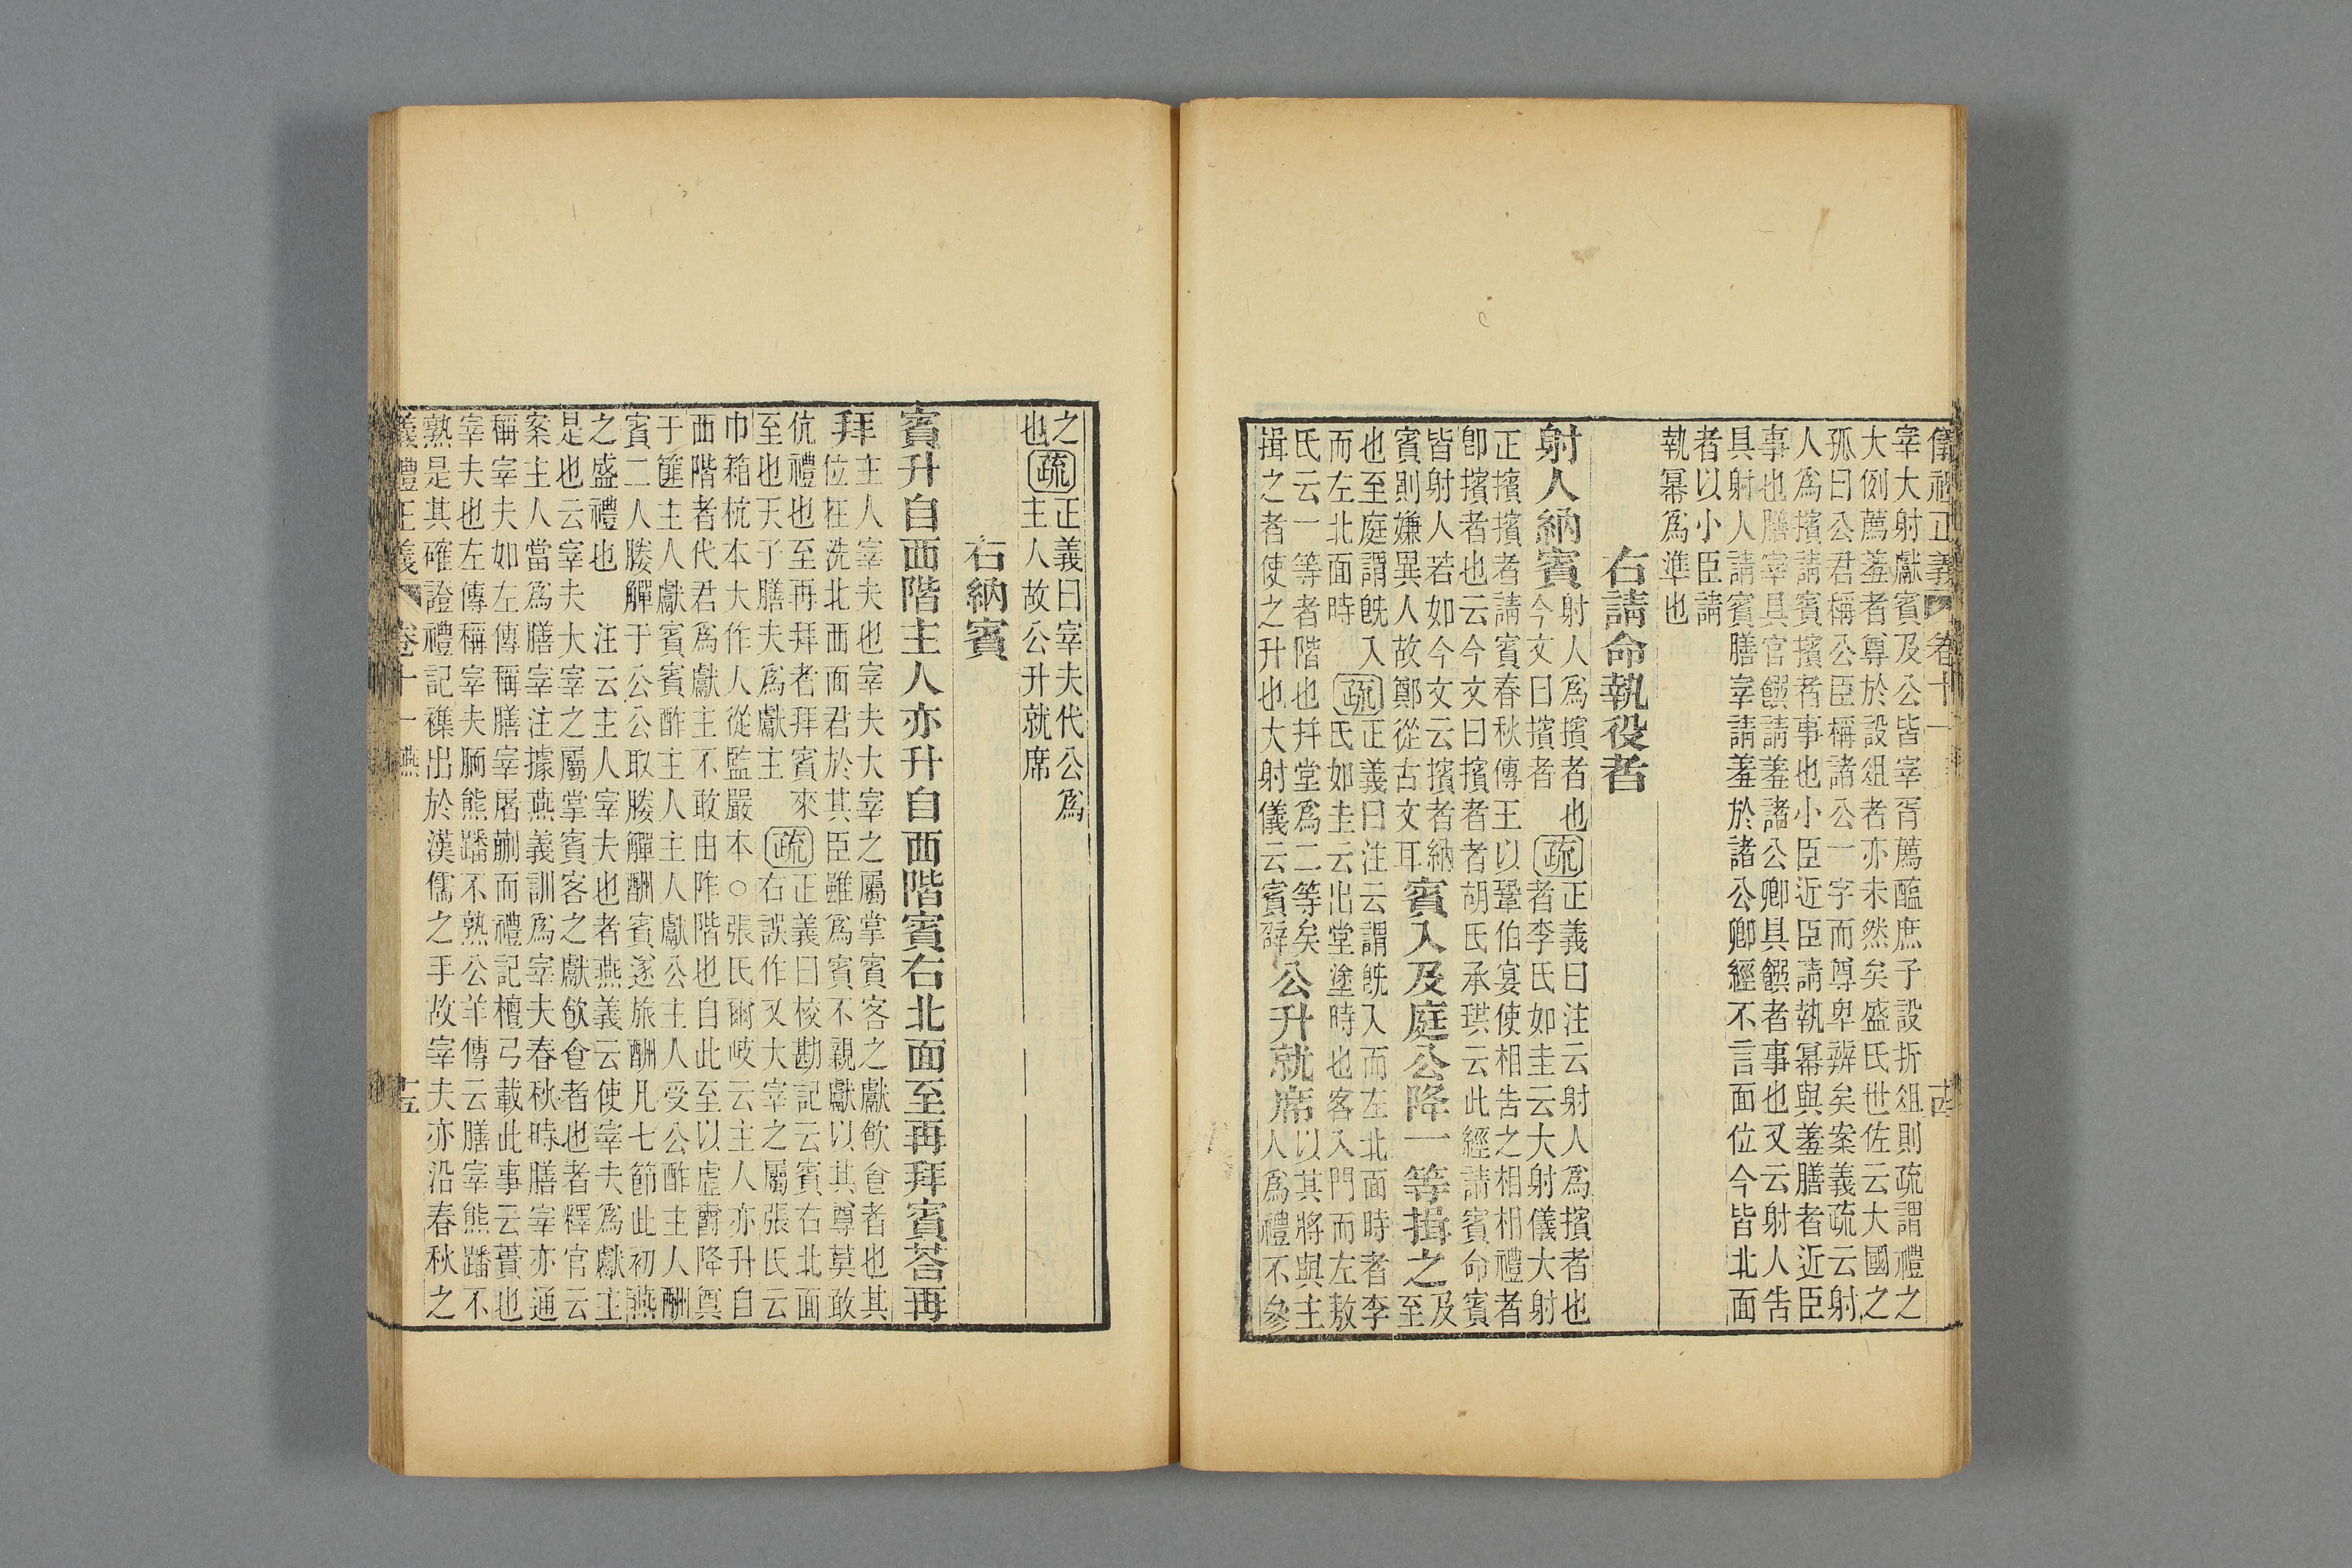 儀禮正義 卷十一 十四
宰大射獻賓及公皆宰胥薦醢庶子設折俎則疏謂禮之
大例薦羞者尊於設俎者亦未然矣盛氏世佐云大國之
孤曰公君稱公臣稱諸公一字而尊卑辨矣案義疏云射
人爲擯請賓擯者事也小臣近臣請執冪與羞膳者近臣
事也膳宰具官饌請羞諸公卿具饌者事也又云射人告
具射人請賓膳宰請羞於諸公卿經不言面位今皆北面
者以小臣請
執冪爲準也
右請命執役者
射人納賓射人爲擯者也疏正義曰注云射人爲擯者也
今文曰擯者者李氏如圭云大射儀大射
正擯擯者請賓春秋傳王以鞏伯宴使相告之相相禮者
卽擯者也云今文曰擯者者胡氏承珙云此經請賓命賓
皆射人若如今文云擯者納賓入及庭公降一等揖之及
賓則嫌異人故鄭從古文耳至
也至庭謂旣入疏正義曰注云謂旣入而左北面時者李
而左北面時氏如圭云出堂塗時也客入門而左敖
氏云一等者階也幷堂爲二等矣公升就席以其將與主
揖之者使之升也大射儀云賓辟人爲禮不參
之疏正義曰宰夫代公爲
也主人故公升就席
右納賓
賓升自西階主人亦升自西階賓右北面至再拜賓荅再
拜主人宰夫也宰夫大宰之屬掌賓客之獻飮食者也其
位在洗北西面君於其臣雖爲賓不親獻以其尊莫敢
伉禮也至再拜者拜賓來疏正義曰校勘記云賓右北面
至也天子膳夫爲獻主右誤作又大宰之屬張氏云
巾箱杭本大作人從監嚴本○張氏爾岐云主人亦升自
西階者代君爲獻主不敢由阼階也自此至以虛爵降奠
于篚主人獻賓賓酢主人主人獻公主人受公酢主人酬
賓二人媵觶于公公取媵觶酬賓遂旅酬凡七節此初燕
之盛禮也 注云主人宰夫也者燕義云使宰夫爲獻主
是也云宰夫大宰之屬掌賓客之獻飮食者也者釋官云
案主人當爲膳宰注據燕義訓爲宰夫春秋時膳宰亦通
稱宰夫如左傳稱膳宰屠蒯而禮記檀弓載此事云蕢也
宰夫也左傳稱宰夫胹熊蹯不熟公羊傳云膳宰熊蹯不
熟是其確證禮記襍出於漢儒之手故宰夫亦沿春秋之
義禮正義 卷十一 燕 十五